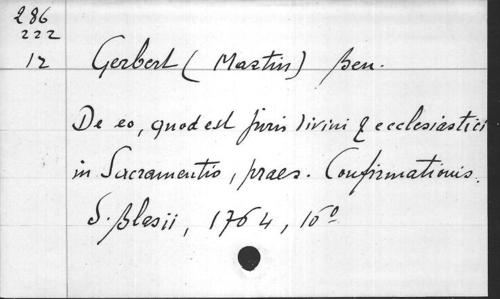 286
222
12
Gerbert (Martin) Ben.
De eo, quod est Juris divini & ecclesiastici
in Sacramentis, praes. Confirmationis.
S. Blasii, 1764, 16º